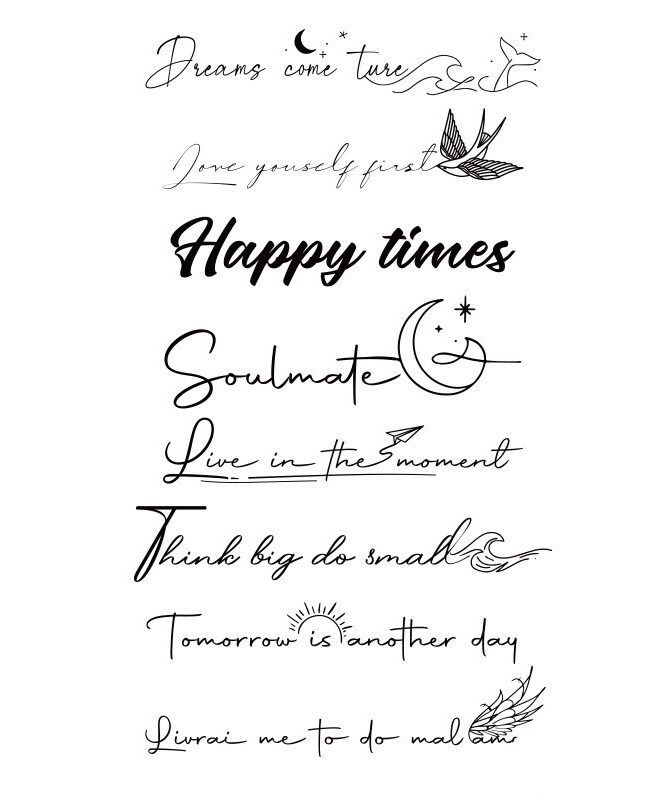 Dreams come ture
Love youself first
Happy times
Soulmate
Live in the moment
Think big do small
Tomorrow is another day
Livrai me to do mal am